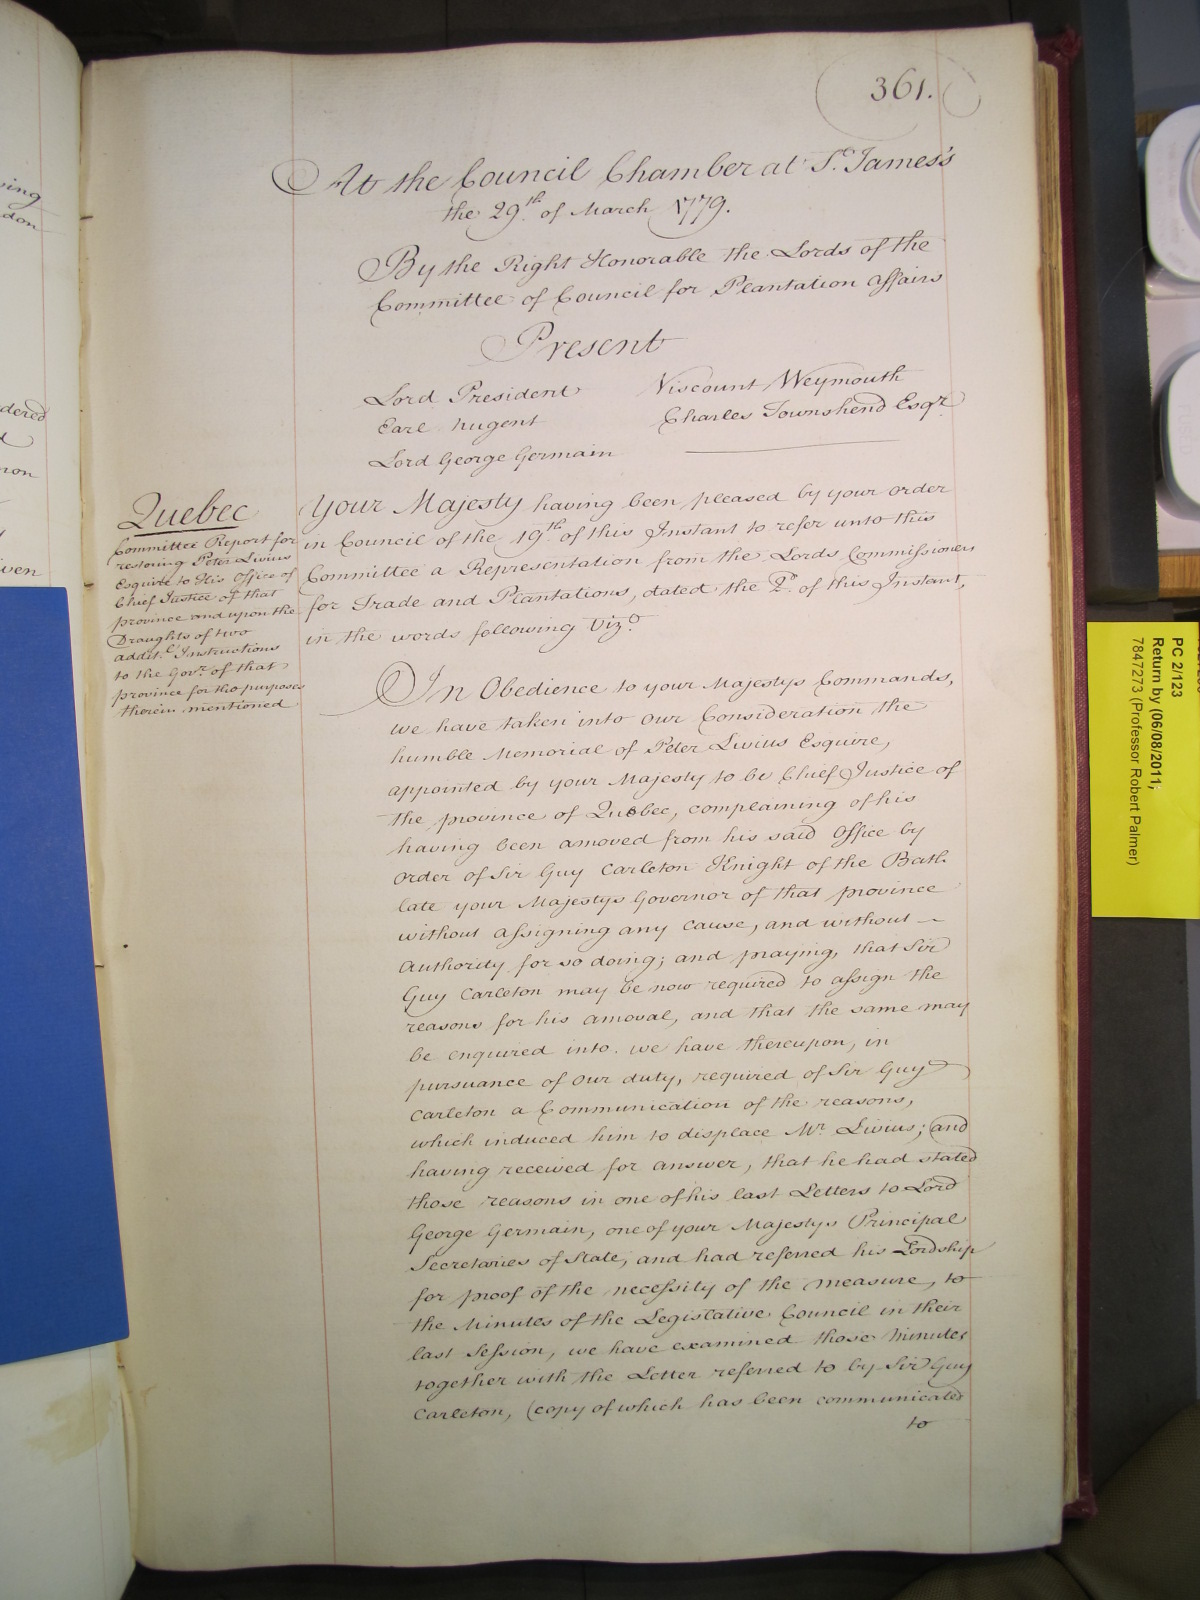 361.
At the Council Chamber at St. James's
the 29th. of March 1779.
By the Right Honorable the Lords of the
Committee of Council for Plantation Affairs
Present
Lord President
Earl Nugent
Lord George Germain
Viscount Weymouth
Charles Townshend Esqr.
Quebec
Committee Report for
restoring Peter Livius
Esquire to His Office of
Chief Justice of that
province and upon the
Draughts of two
addit.l Instructions
to the Govr. of that
province for the purposes
therein mentioned
Your Majesty having been pleased by your order
in Council of the 19th. of this Instant to refer unto this
Committee a Representation from the Lords Commissioners
for Trade and Plantations, dated the 2d. of this Instant,
in the words following Vizt.
In Obedience to your Majestys Commands,
we have taken into our Consideration the
humble Memorial of Peter Livius Esquire,
appointed by your Majesty to be Chief Justice of
the province of Quebec, complaining of his
having been amoved from his said Office by
order of Sir Guy Carleton Knight of the Bath
late your Majestys Governor of that province
without assigning any cause, and without
Authority for so doing; and praying, that Sir
Guy Carleton may be now required to assign the
reasons for his amoval, and that the same may
be enquired into. we have thereupon, in
pursuance of our duty, required of Sir Guy
Carleton a Communication of the reasons,
which induced him to displace Mr. Livius; and
having received for answer, that he had stated
those reasons in one of his last Letters to Lord
George Germain, one of your Majestys Principal
Secretaries of State, and had referred his Lordship
for proof of the necessity of the measure, to
the Minutes of the Legislative Council in their
last Session, we have examined those Minutes
together with the Letter referred to by Sir Guy
Carleton, (copy of which has been communicated
to
PC 2/123
Return by (06/08/2011;
7847273 (Professor Robert Palmer)
ing
don
dered
ven